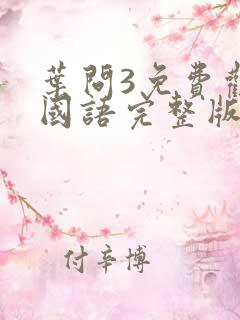 葉問3免費觀
國語完整版
付辛博